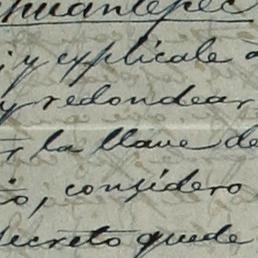 huantepec
y explícale a
y redondear
la llave de
considero
secreto quede